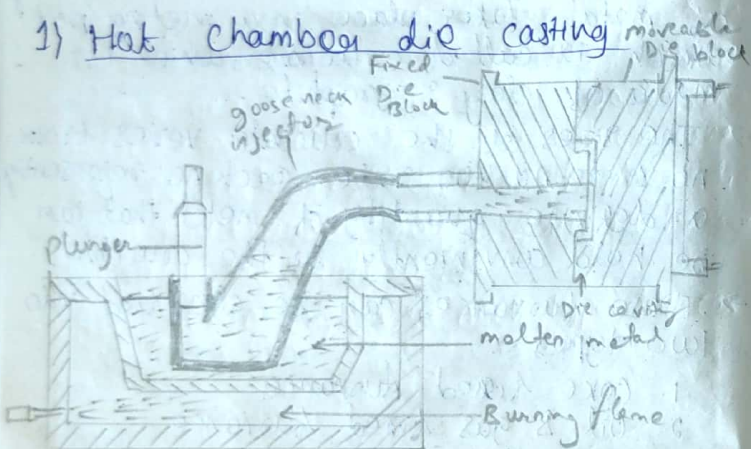 1) Hot chamber die casting
moveable
Die block
Fixed
Die
Block
goose neck
injector
plunger
Die cavity
molten metal
Burning flame